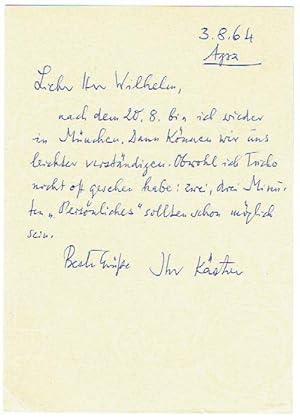 3.8.64
Agra
Lieber Herr Wilhelm,
nach dem 20. 8. bin ich wieder
in München. Dann können wir uns
leichter verständigen. Obwohl ich Tucho
nicht oft gesehen habe: zwei, drei Minu-
ten „Persönliches" sollten schon möglich
sein.
Beste Grüße Ihr Kästner